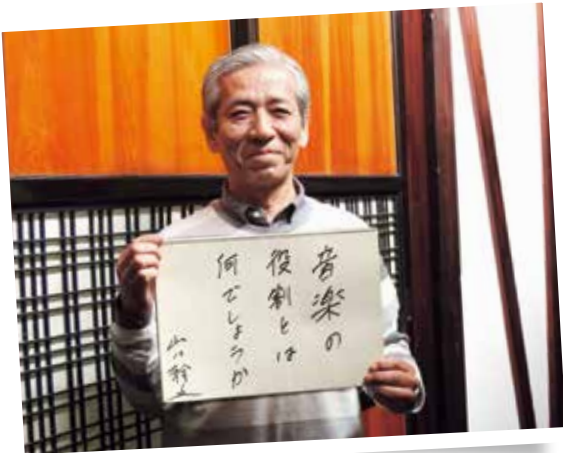 音楽の
役割とは
何でしょうか
山口